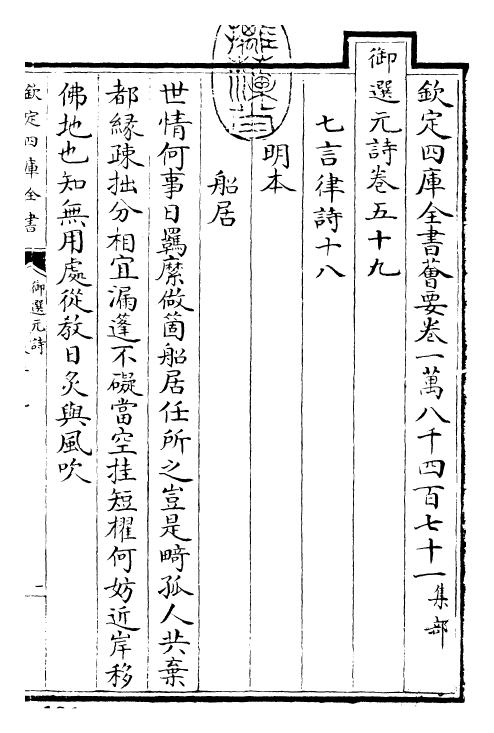 欽定四庫全書薈要卷一萬八千四百七十一集部
御選元詩卷五十九
七言律詩十八
明本
船居
世情何事日羈縻做箇船居任所之豈是畸孤人共棄
都緣疎拙分相宜漏蓬不礙當空挂短櫂何妨近岸移
佛地也知無用處從教日炙與風吹
欽定四庫全書
御選元詩